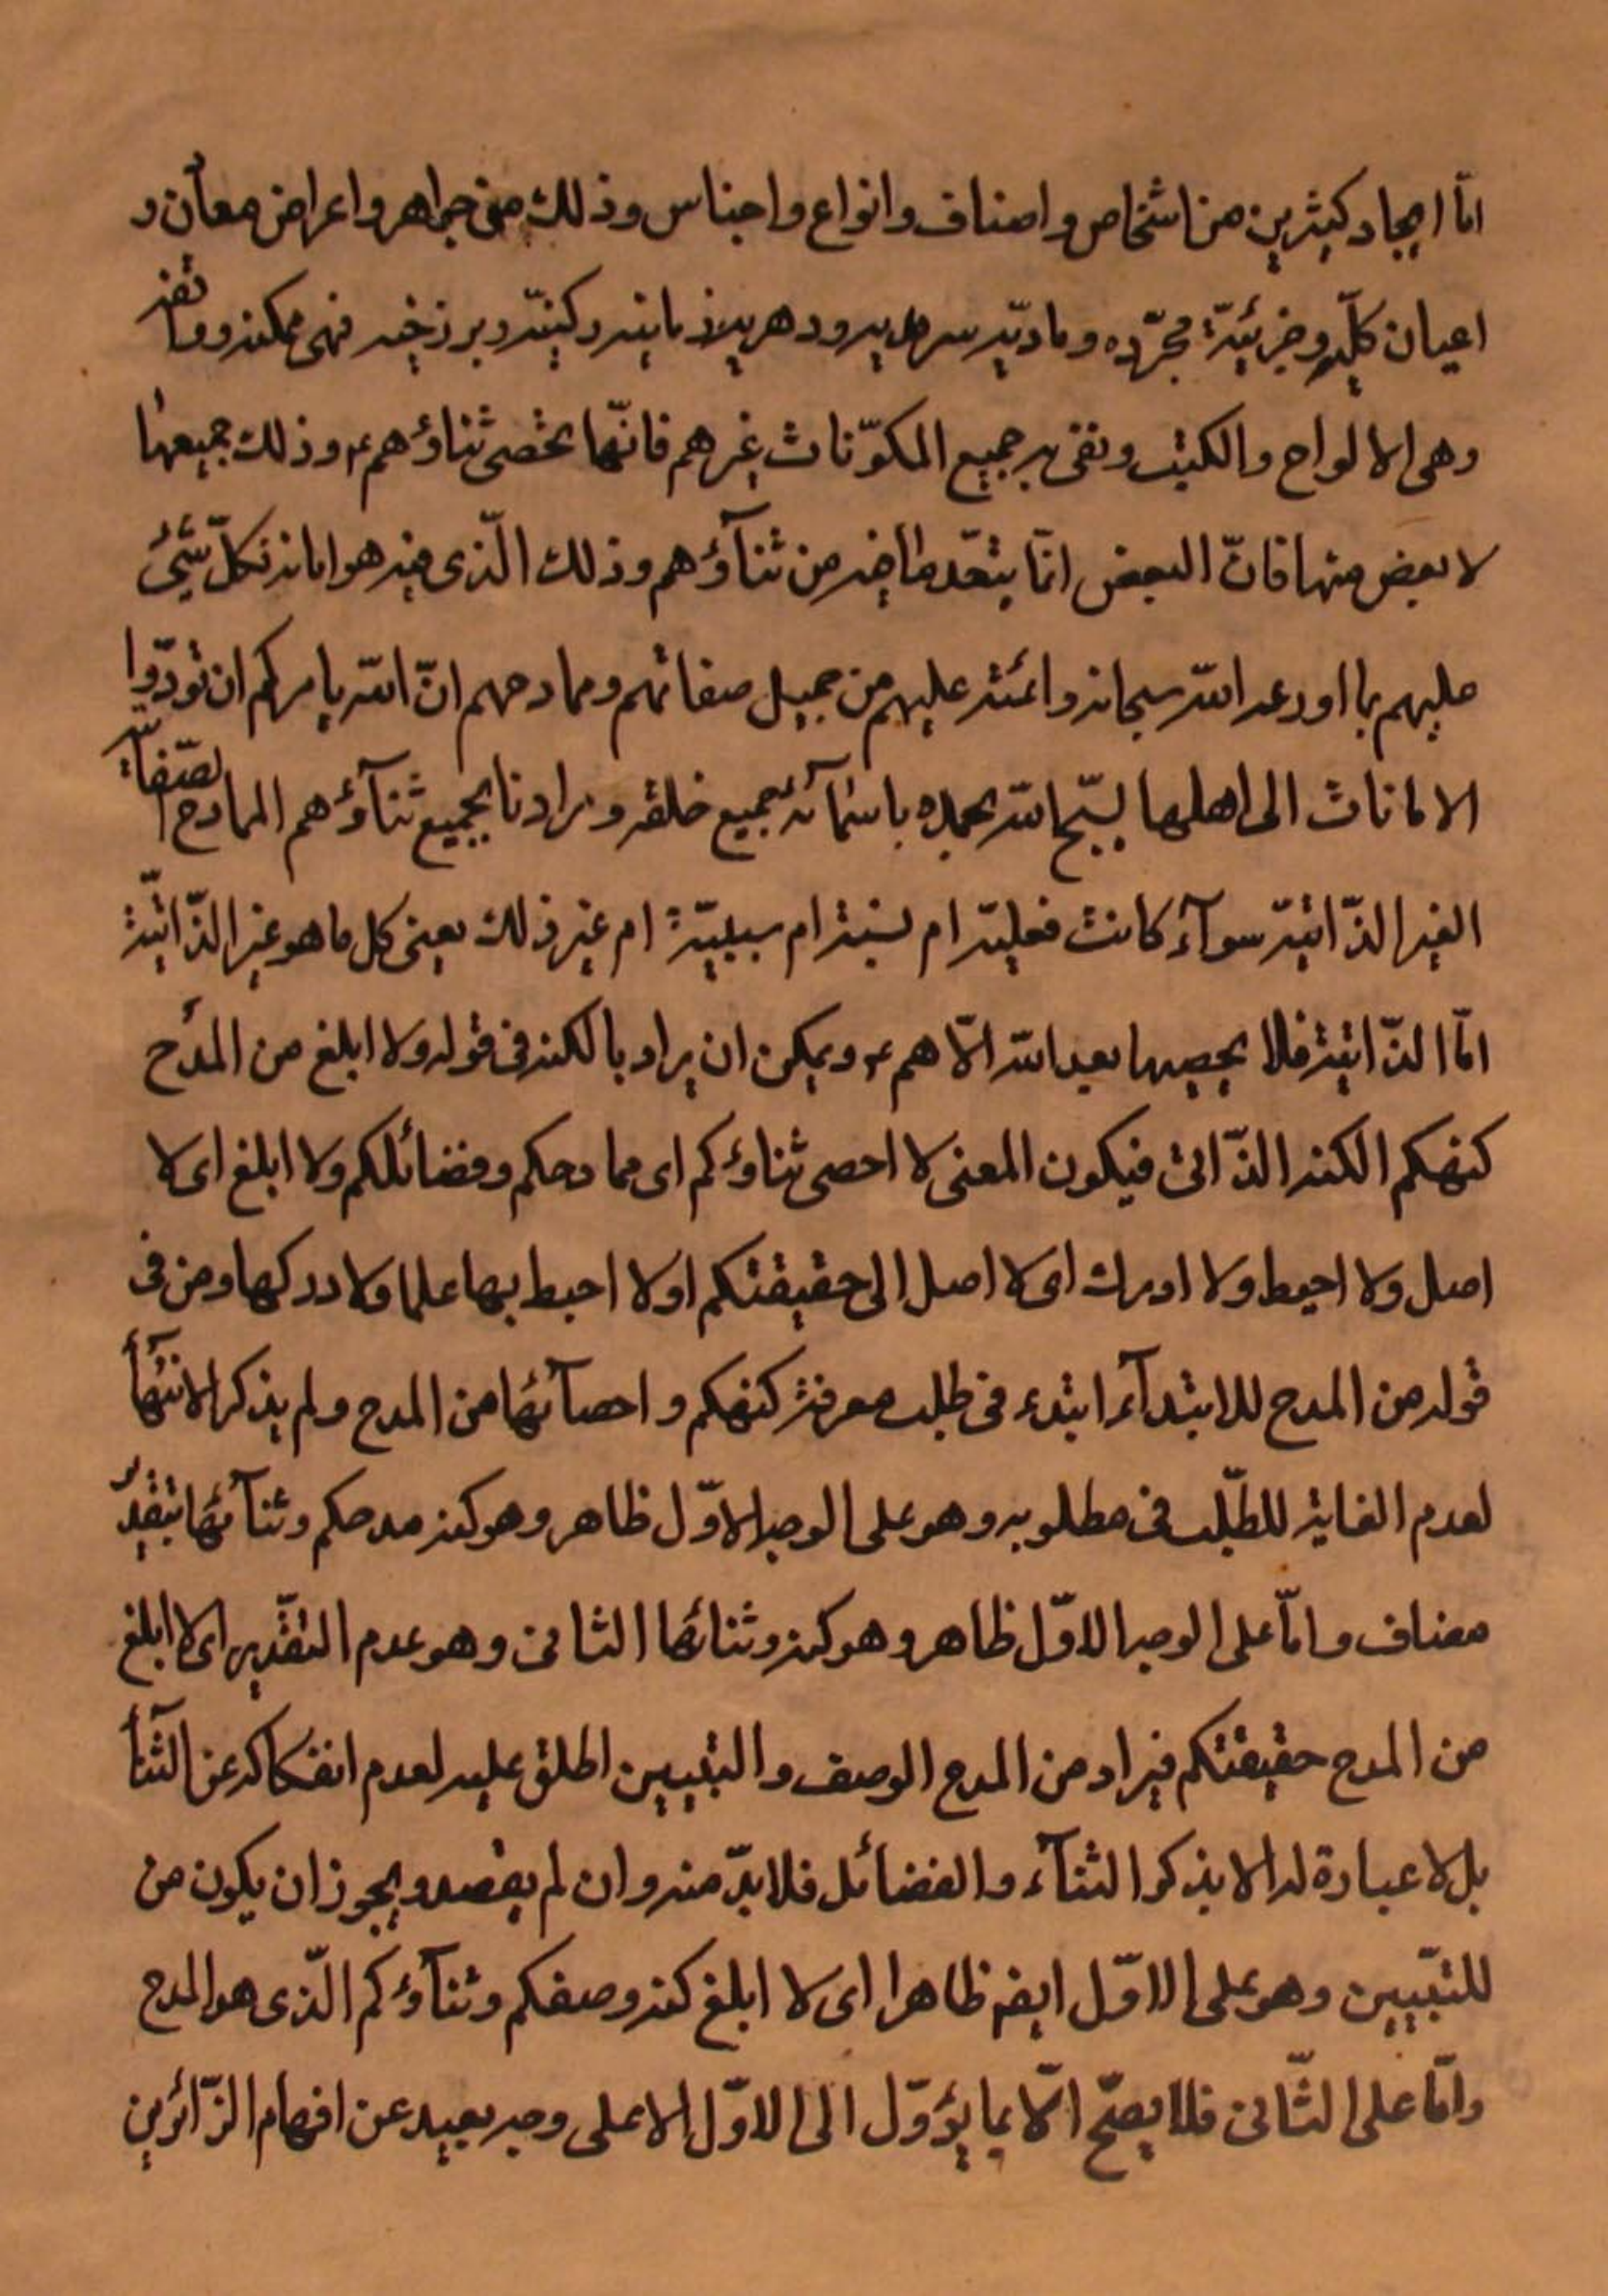 امّا ايجاد كثيرين من اشخاص واصناف وانواع واجناس وذلك من جواهر واعراض معان و
اعيان كلّيه وجزئيّة مجرّده وماديّه سرمديه ودهريه زمانيه وكينيّه وبرزخيه فهى ممكنه وواقعه
وهى الالواح والكتب ونفى به جميع المكوّنات غيرهم فانّها تحصى ثناؤهم ع وذلك جميعها
لا بعض منها فانّ البعض انّما يتعدّ ما فيه من ثنآؤهم وذلك الّذى فيه هو امانة كلّ شئ
عليهم بما اودعه الله سبحانه وائمنه عليهم من جميل صفاتهم وممادحهم انّ الله يامركم ان تؤدّوا
الامانات الى اهلها يسبّح الله بحمده باسمآئه جميع خلقه ومرادنا بجميع ثنآؤهم الممادح الصّفاتيّه
الغير الذّاتيّه سوآء كانت فعليّه ام نسبيّه ام سببيّة ام غير ذلك يعنى كل ما هو غير الذّاتيّة
امّا الذّاتيّه فلا يحصيها بعد الله الّا هم ع ويمكن ان يراد بالكنه فى قوله ولا ابلغ من المدح
كنهكم الكنه الذّاتى فيكون المعنى لا احصى ثناؤكم اى ممادحكم وفضائلكم ولا ابلغ اى لا
اصل ولا احيط ولا ادرك اى لا اصل الى حقيقتكم او لا احيط بها علما ولا ادركها ومن فى
قوله من المدح للابتدآء ابتدء فى طلب معرفة كنهكم واحصآئها من المدح ولم يذكر الانتهآء
لعدم الغاية للطّلب فى مطلوبه وهو على الوجه الاوّل ظاهر وهو كنه مدحكم وثنآئها بتقدير
مضاف وامّا على الوجه الاوّل ظاهر وهو كنه وثنائها الثانى وهو عدم التقدير اى لا ابلغ
من المدح حقيقتكم فيراد من المدح الوصف والتبيين اطلق عليه لعدم انفكاكه عن الثنآء
بل لا عبارة له الا بذكر الثنآء والفضائل فلا بدّ منه وان لم يقصد ويجوز ان يكون من
للتبيين وهو على الاوّل ايضه ظاهرا اى لا ابلغ كنه وصفكم وثنآؤكم الّذى هو المدح
وامّا على الثّانى فلا يصحّ الّا بما يؤوّل الى الاوّل الا على وجه بعيد عن افهام الزّائرين